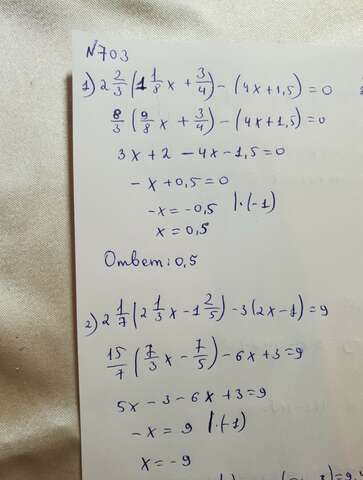 №703
1) 2 2/3 (1 1/8 x + 3/4) - (4x+1,5) = 0
8/3 (9/8 x + 3/4) - (4x+1,5) = 0
3x + 2 - 4x - 1,5 = 0
-x + 0,5 = 0
-x = -0,5 |·(-1)
x = 0,5
Ответ: 0,5
2) 2 1/7 (2 1/3 x - 1 2/5) - 3(2x-1) = 9
15/7 (7/3 x - 7/5) - 6x + 3 = 9
5x - 3 - 6x + 3 = 9
-x = 9 |·(-1)
x = -9